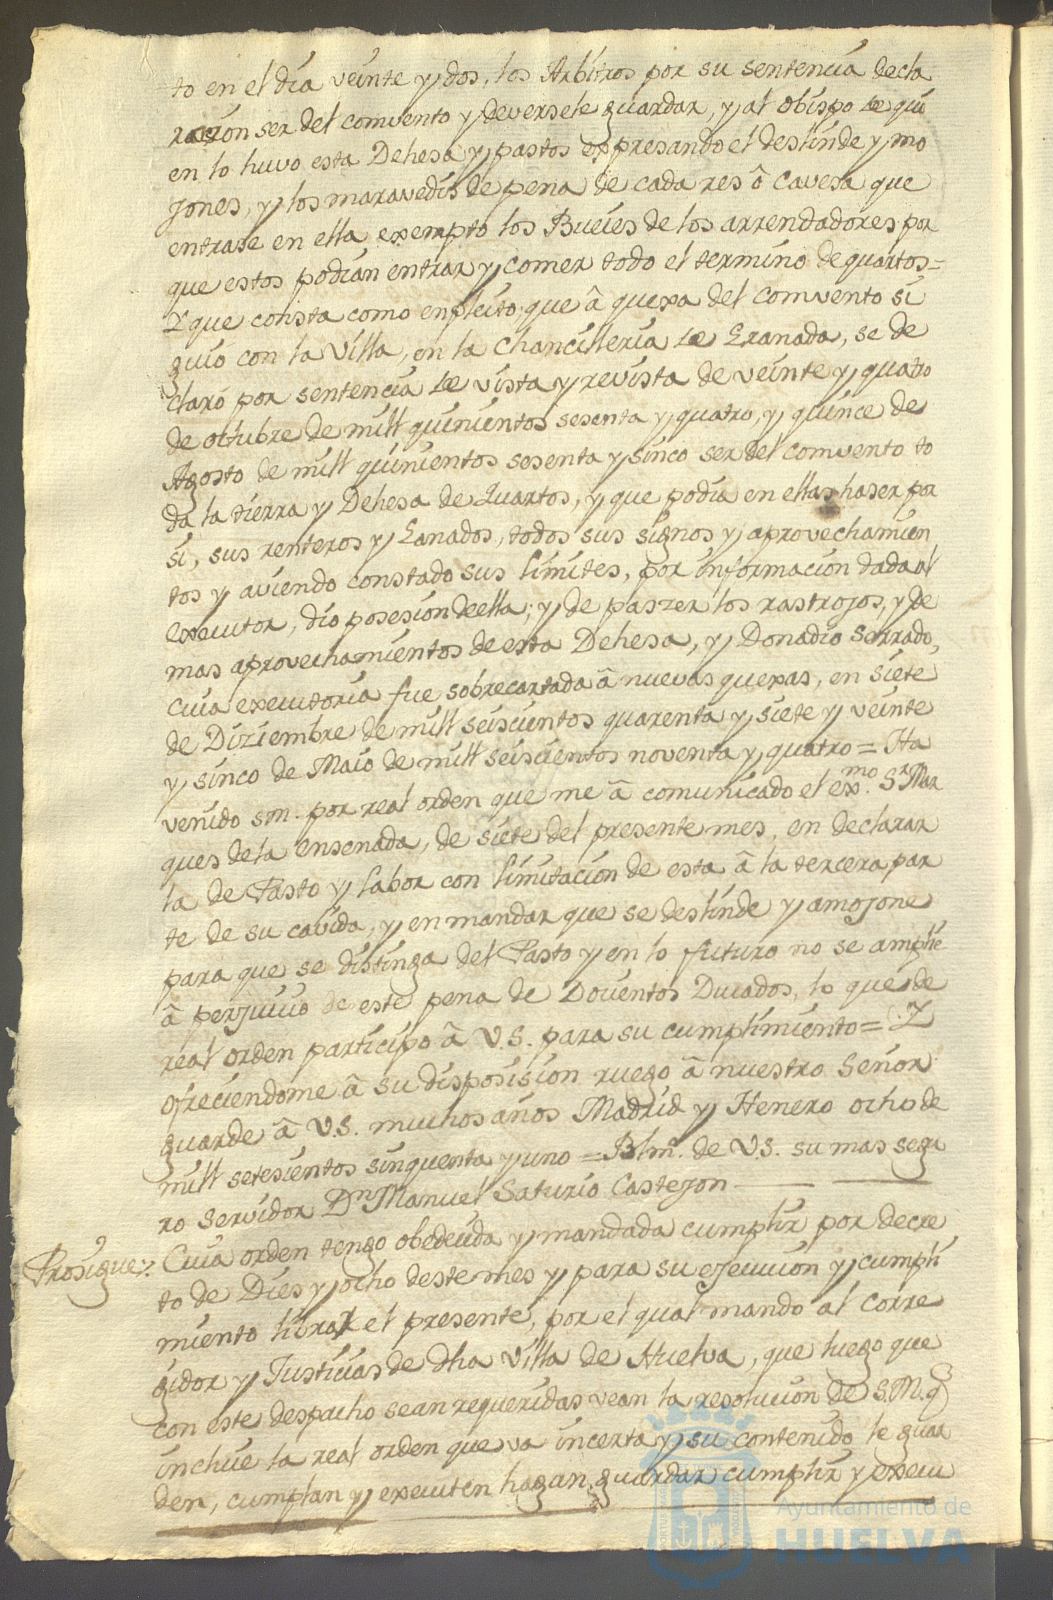 to en el día veinte y dos, los Arbitros por su sentencia decla
raron ser del comvento y deversele guardar, y al obispo de qui
en lo huvo esta Dehesa y pastos expresando el deslinde y mo
jones, y los maravedis de pena de cada res ô cavesa que
entrase en ella exempto los Bueies de los arrendadores por
que estos podian entrar y comer todo el termino de quartos=
Y que consta como en pleito que â quexa del comvento si
guio con la Villa, en la chancilleria de Granada, se de
claró por sentencia de vista y revista de veinte y quatro
de octubre de mill quinientos sesenta y quatro, y quince de
Agosto de mill quinientos sesenta y sinco ser del comvento to
da la tierra y Dehesa de Quartos, y que podia en ellas haser por
si, sus renteros y Ganados, todos sus signos y aprovechamien
tos y aviendo constado sus limites, por informacion dada al
executor, dio posesion de ella; y de paszer los rastrojos, y de
mas aprovechamientos de esta Dehesa, y Donadio serrado,
cuia executoria fue sobrecartada â nuevas quexas, en siete
de Diziembre de mill seiscientos quarenta y siete y veinte
y sinco de Maio de mill seiscientos noventa y quatro = Ha
venido sm. por real orden que me â comunicado el exmo. Sr. Mar
ques de la ensenada, de siete del presente mes, en declarar
la de Pasto y labor con limitacion de esta â la tercera par
te de su cavida, y en mandar que se deslinde y amojone
para que se distinga del Pasto y en lo futuro no se amplie
â perjuicio de este pena de Docientos Ducados, lo que de
real orden participo â V.S. para su cumplimiento= Y
ofreciendome â su disposision ruego â nuestro Señor
guarde â V.S. muchos años Madrid y Henero ocho de
mill setesientos sinquenta y uno = Blm. de V.S. su mas segu
ro servidor Dn Manuel Saturio Castejon
Prosigue: Cuia orden tengo obedecida y mandada cumplir por decre
to de Dies y ocho deste mes y para su ejecucion y cumpli
miento librar el presente, por el qual mando al Corre
gidor y Justicias de dha Villa de Huelva, que luego que
con este despacho sean requeridas vean la resolucion de S.M. q
inclúie la real orden que va incerta y su contenido le guar
den, cumplan y executen hagan guardar cumplir y execu
Ayuntamiento de
HUELVA